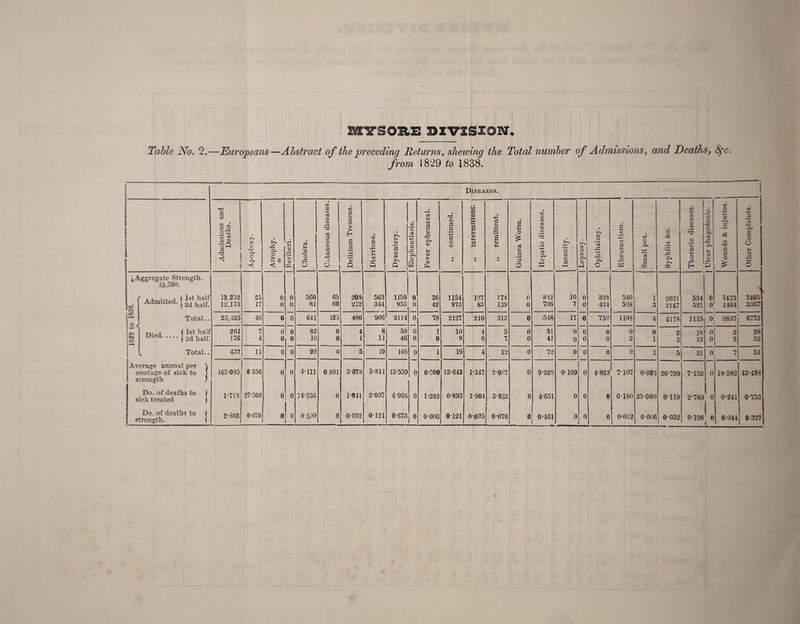 MYSORE DIVISION.
Table No. 2.—Europeans—Abstract of the preceding Returns, shewing the Total number of Admissions, and Deaths, &c.
from 1829 to 1838.
Diseases.
Admissions and Deaths. Apoplexy. Atrophy. Beriberi. Cholera. Cutaneous diseases. Delirium Tremens. Diarrhœa. Dysentery. Elephantiasis. Fever ephemeral. ,, continued. ,, intermittent. ,, remittent. Guinea Worm. Hepatic diseases. Insanity. Leprosy. Ophthalmy. Rheumatism. Small pox. Syphilis &c. Thoracic diseases. Ulcer phagedenic. Wounds & injuries. Other Complaints.
Aggregate Strength.
15,590.
1829 to 1838.
Admitted. 1st half 13,252 23 0 0 560 65 208 562 1159 0 36 1154 127 174 0 842 10 0 328 540 1 2031 594 0 1433 3405
2d half. 12,173 17 0 0 81 60 272 344 955 0 42 973 83 139 0 706 7 0 424 568 3 2147 521 0 1464 3367
Total.. 25,425 40 0 0 641 125 480 906 2114 0 78 2127 210 313 0 548 17 0 752 1108 4 4178 1115 0 2897 6772
Died..... 1st half 261 7 0 0 82 0 4 8 59 0 1 10 4 5 0 31 0 0 0 0 0 2 18 0 2 28
2d half. 176 4 0 0 10 0 1 11 46 0 0 9 0 7 0 41 0 0 0 2 1 3 13 0 5 23
Total.. 437 11 0 0 92 0 5 19 105 0 1 19 4 12 0 72 0 0 0 2 1 5 31 0 7 51
Average annual per centage of sick to strength 163·085 0·256 0 0 4·111 0·801 3·078 5·811 13·559 0 0·500 13·643 1·347 2·007 0 9·929 0·109 0 4·823 7·107 0·025 26·799 7·152 0 18·582 43·438
Do. of deaths to sick treated 1·718 27·500 0 0 14·336 0 1·041 2·097 4·966 0 1·282 0·893 1·904 3·833 0 4·651 0 0 0 0·180 25·000 0·119 2·780 0 0·241 0·753
Do. of deaths to strength. 2·803 0·070 0 0 0·590 0 0·032 0·121 0·673 0 0·006 0·121 0·025 0·076 0 0·461 0 0 0 0·012 0·006 0·032 0·198 0 0·044 0·327